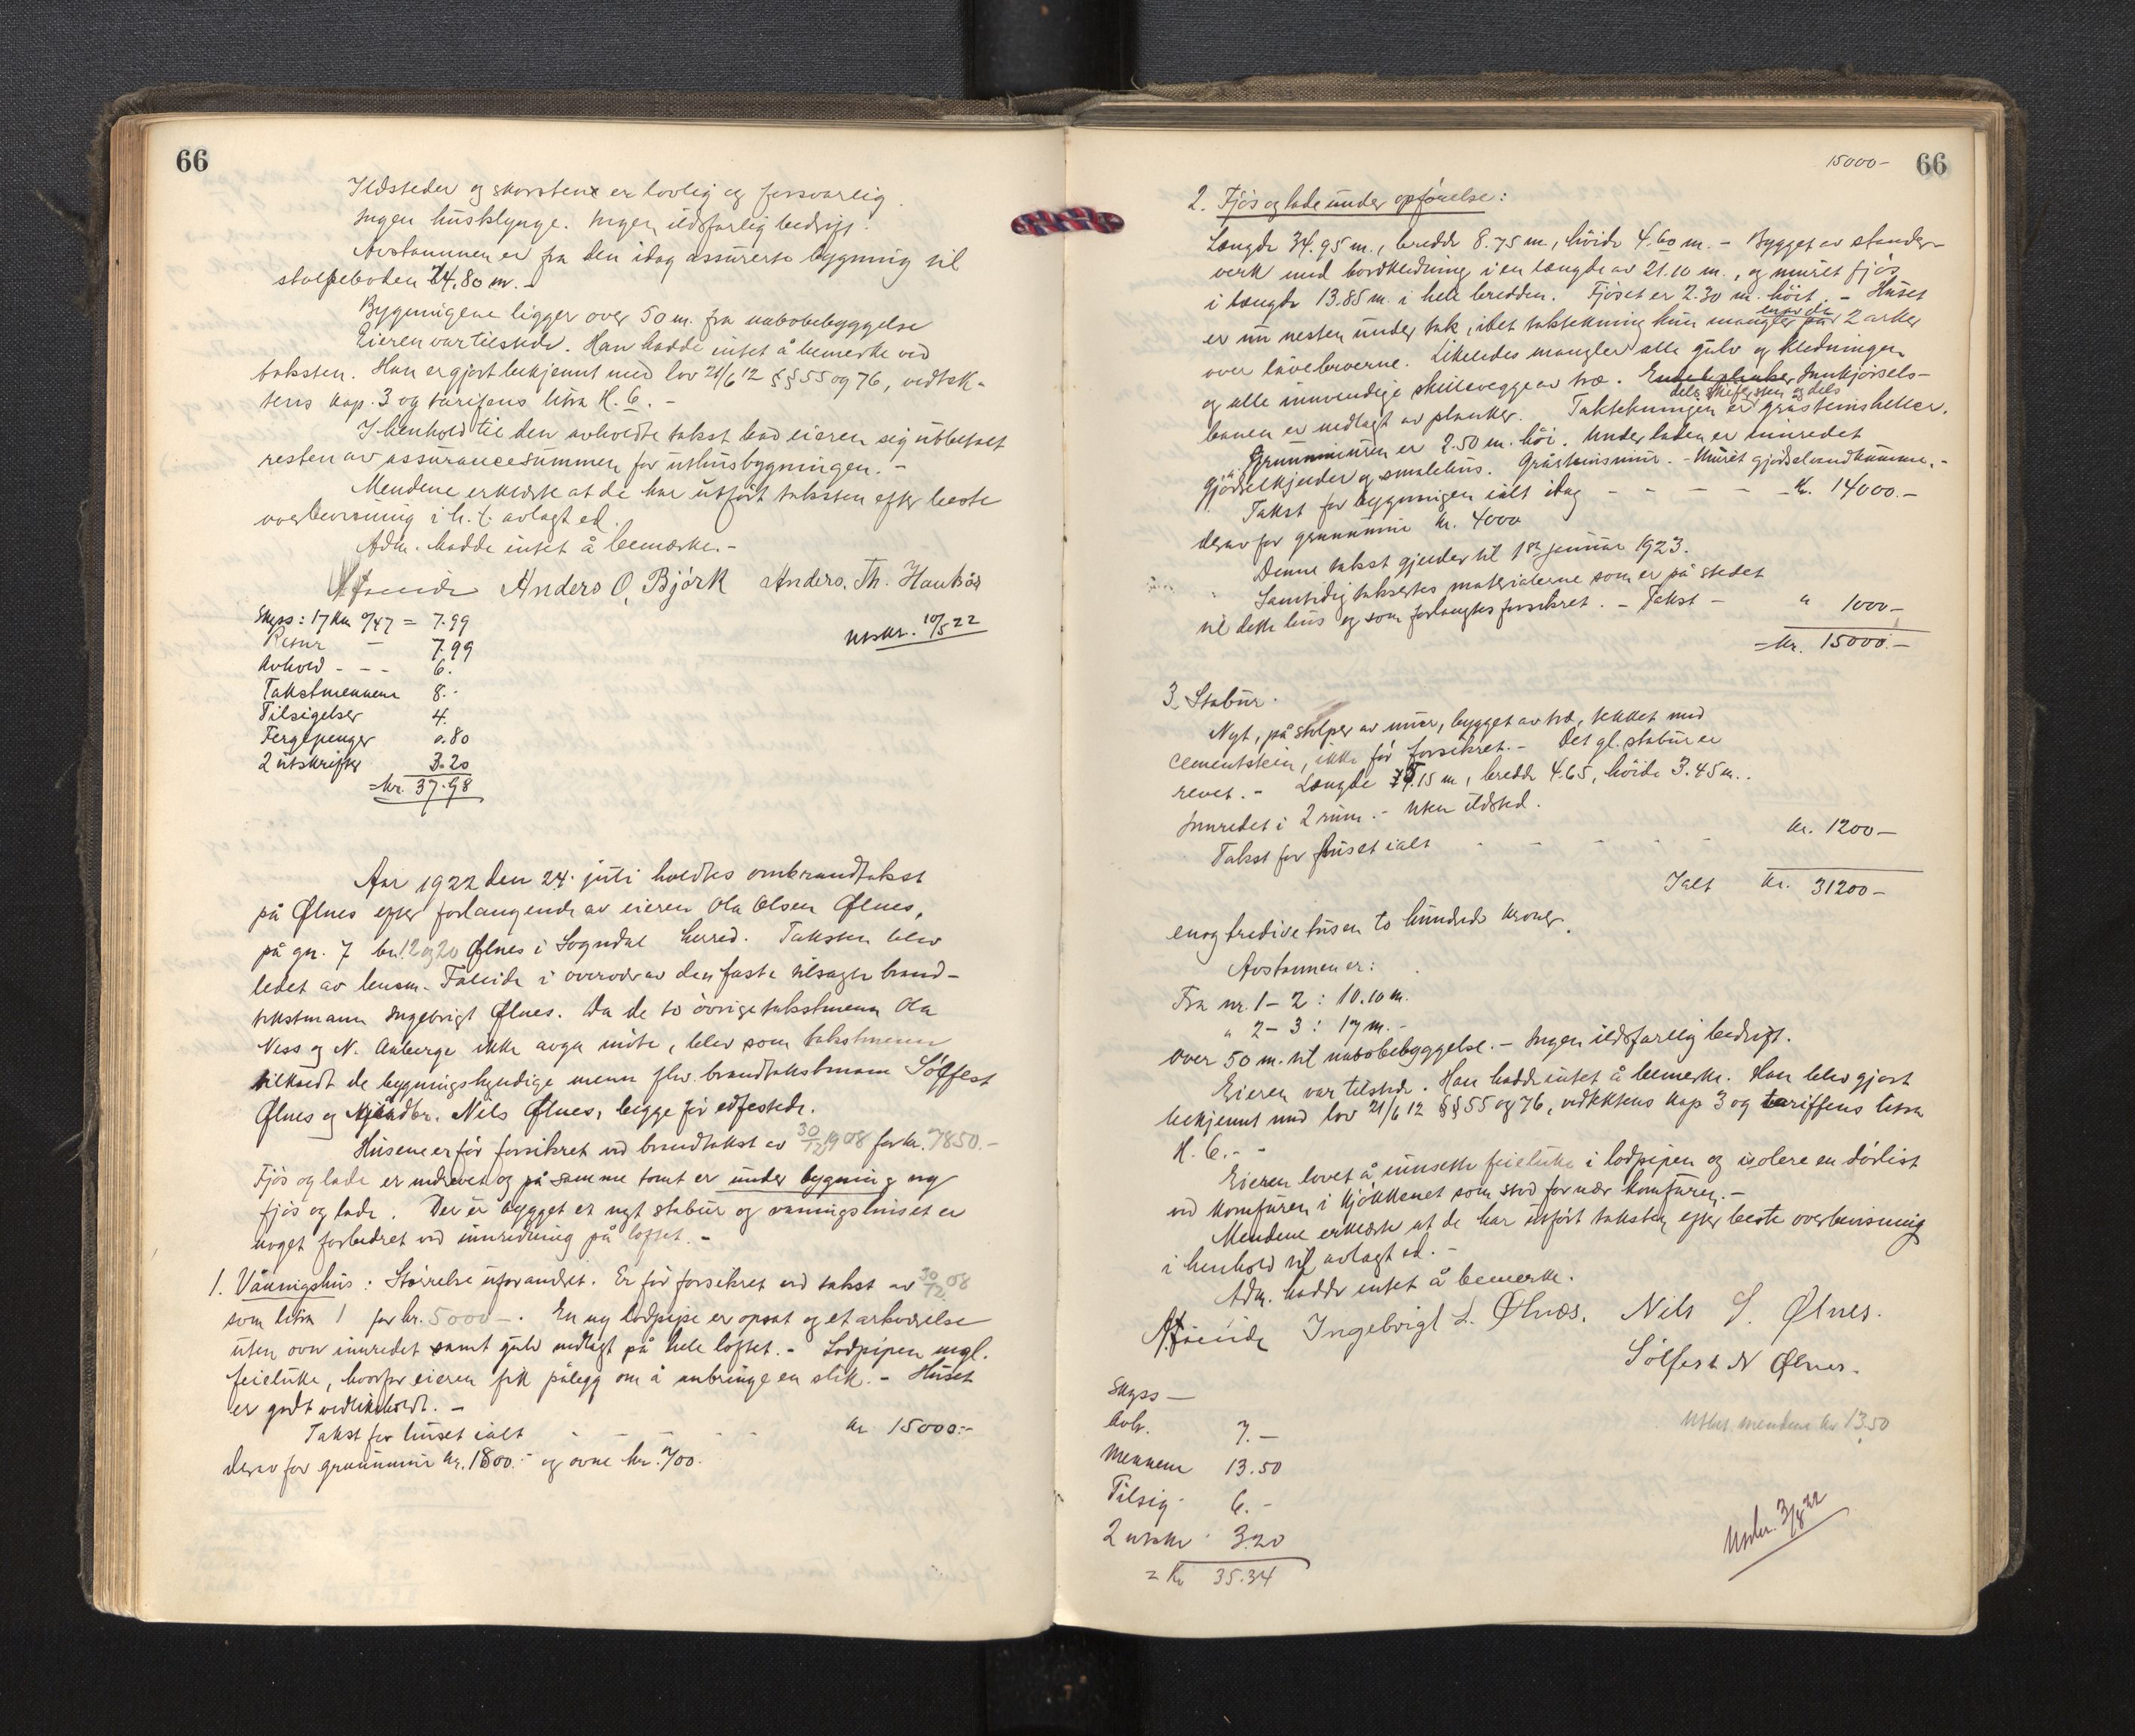 66
Ildsteder og skorstene er lovlig og forsvarlig.
Ingen husklynge. Ingen ildsfarlig bedrift.
Avstannnen er fra den idag assurerte bygning til
stolpeboden 24.80 m. -
Bygningene ligger over 50 m. fra nabobebyggelse
Eieren var tilstede. Han hadde intet å bemerke ved
taksten. Han er gjort bekjennt med lov 21/6 12 §§ 55 og 76, vedtek-
tens kap. 3 og tarifens litra H. 6. -
I henhold til den avholdte takst bad eieren sig utbetalt
resten av assurancesummen for uthusbygningen. -
Mendene erklærte at de har utført taksten efter beste
overbevisning i h. t. avlagt ed.
Adm. hadde intet å bemærke. -
AFaleide Anders O. Björk Anders. Th. Haukås
Skyss: 17 km a/47 = 7.99
Retur - 7.99
Avhold - - - 6.
Takstmennene 8.-
Tilsigelser 4.
Fergepenger 0.80
2 utskrifter 3.20
= kr. 37.98
Utskr. 10/5 22
Aar 1922 den 24. juli holdtes ombrandtakst
på Ølnes efter forlangende av eieren Ola Olsen Ølnes,
på gn. 7 bn. 12 og 20 Ølnes i Sogndal herred. Taksten blev
ledet av lensm. Faleide i overvær av den faste tilsagte brand-
takstmann Ingebrigt Ølnes. Da de to övrige takstmenn Ola
Ness og N. Auberge ikke avga møte, blev som takstmenn
tilkaldt de bygningskyndige menn fhv. brandtakstmann Sölfest
Ølnes og Gårdbr. Nils Ølnes, begge før edfestede.
Husene er før forsikret ved brandtakst av 30/12 1908 for kr. 7850.-
Fjøs og lade er nedrevet og på samme tomt er under bygning ny
fjøs og lade. Der er bygget et nyt stabur og våningshuset er
noget forbedret ved innredning på loftet. -
1. Våningshus: Størrelse uforandret. Er før forsikret ved takst av 30/12 08
som litra 1 for kr. 5000-. En ny lodpipe er opsat og et arkværelse
uten ovn innredet samt gulv nedlagt på hele loftet. - Lodpipen mgl.
feieluke, hvorfor eieren fik pålegg om å anbringe en slik. - Huset
er godt vedlikeholdt. -
Takst for huset ialt - - - - kr 15000.-
derav for grunnmur kr. 1800.- og ovne kr. 700.
15000- 66
2. Fjøs og lade under opførelse:
Længde 34.95 m., bredde 8.75 m., høide 4.60 m. - Bygget av stender-
verk med bordkledning i en længde av 21.10 m., og muret fjøs
i længde 13.85 m. i hele bredden. Fjøset er 2.30 m. høit. - Huset
er nu nesten under tak, idet taktekning kun mangler på 2 arker
over låvebroerne. Likeledes mangler alle gulv og kledningen
og alle innvendige skillevegge av træ. Innkjørsels-
banen er nedlagt av planker. Taktekningen er dels skifersten og dels gråsteinsheller.
Grunnmuren er 2.50 m. høi. Under laden er innredet
gjødselkjeller og smalehus. Gråsteinsmur. - Muret gjødselvandkumme. -
Takst for bygningen ialt idag - - - - kr. 14000.-
derav for grunnmur kr. 4000
Denne takst gjelder til 1ste januar 1923.
Samtidig taksertes materialerne som er på stedet
til dette hus og som forlangtes forsikret. - Takst - " 1000-
= kr. 15000.-
3. Stabur.
Nyt, på stolper av mur, bygget av træ, tekket med
cementstein, ikke før forsikret. - Det gl. stabur er
revet. - Længde 5.15 m, bredde 4.65, höide 3.45 m..
Innredet i 2 rum. - Uten ildsted.
Takst for huset ialt - - - - - kr. 1200-
Ialt kr. 31200-
enog tredive tusen to hundrede kroner.
Avstannen er:
Fra nr. 1-2: 10.10 m.
" 2-3: 17 m. -
Over 50 m. til nabobebyggelse. - Ingen ildsfarlig bedrift.
Eieren var tilstede. Han hadde intet å bemerke. Han blev gjort
bekjennt med lov 21/6 12 §§ 55 og 76, vedtektens kap 3 og tariffens litra
H. 6. - -
Eieren lovet å innsette feieluke i lodpipen og isolere en dørlist
ved komfuren i kjökkenet som stod for nær komfuren. -
Mendene erklærte at de har utført taksten efter beste overbevisning
i henhold til avlagt ed. -
Adm. hadde intet å bemerke.
A.Faleide Ingebrigt L. Ølnæs. Nils S. Ølnes.
Sölfest N Ølnes.
Skyss -
Avh. 7.-
Mennene 13.50
Tilsig. 6.-
2 utskr. 3.20
= Kr 35.34
Utbet. mendene kr 13.50
Utskr. 3/8 22